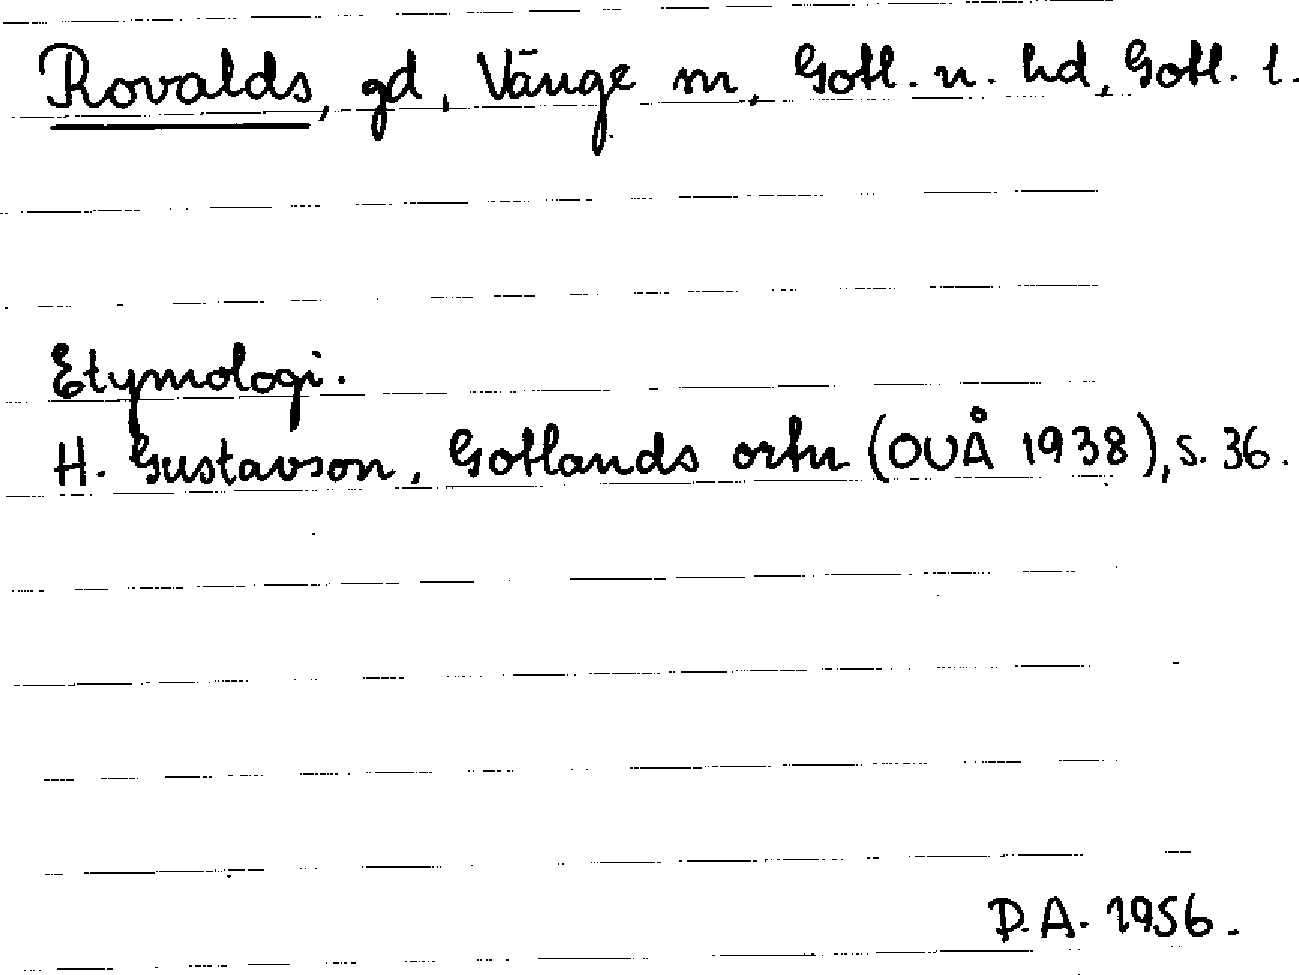 Rovalds, gd, Vänge sn, Gotl. n. hd, Gotl. l.
Etymologi.
H. Gustavson, Gotlands ortn (OUÅ 1938), s. 36.
P.A. 1956.